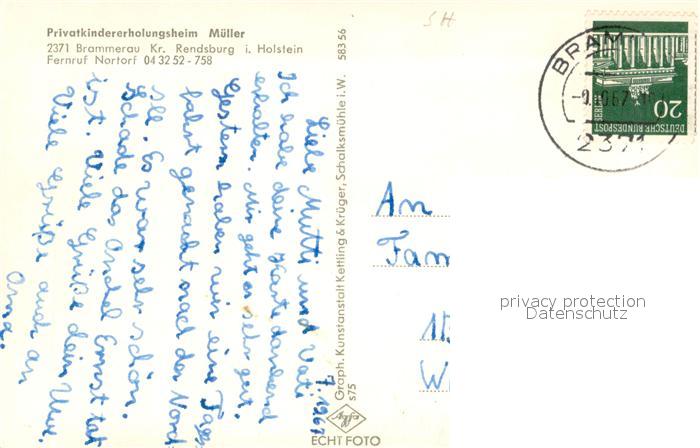 Privatkindererholungsheim Müller
2371 Brammerau Kr. Rendsburg i. Holstein
Fernruf Nortorf 04 32 52 - 758
583 56
SH
Graph. Kunstanstalt Kettling & Krüger, Schalksmühle i.W.
s75
Agfa
ECHT FOTO
7. 1967
Liebe Mutti und Vati
Ich habe deine Karte dankend
erhalten. Mir geht es sehr gut.
Gestern haben wir eine Tages
fahrt gemacht nach der Nord
see. Es war sehr schön.
Schade das Onkel Ernst tot
ist. Viele Grüße dein Uwe.
Viele Grüße auch an
Oma.
An
Fam
W
DEUTSCHE BUNDESPOST
20
BERLIN
BRAM
2371
privacy protection
Datenschutz